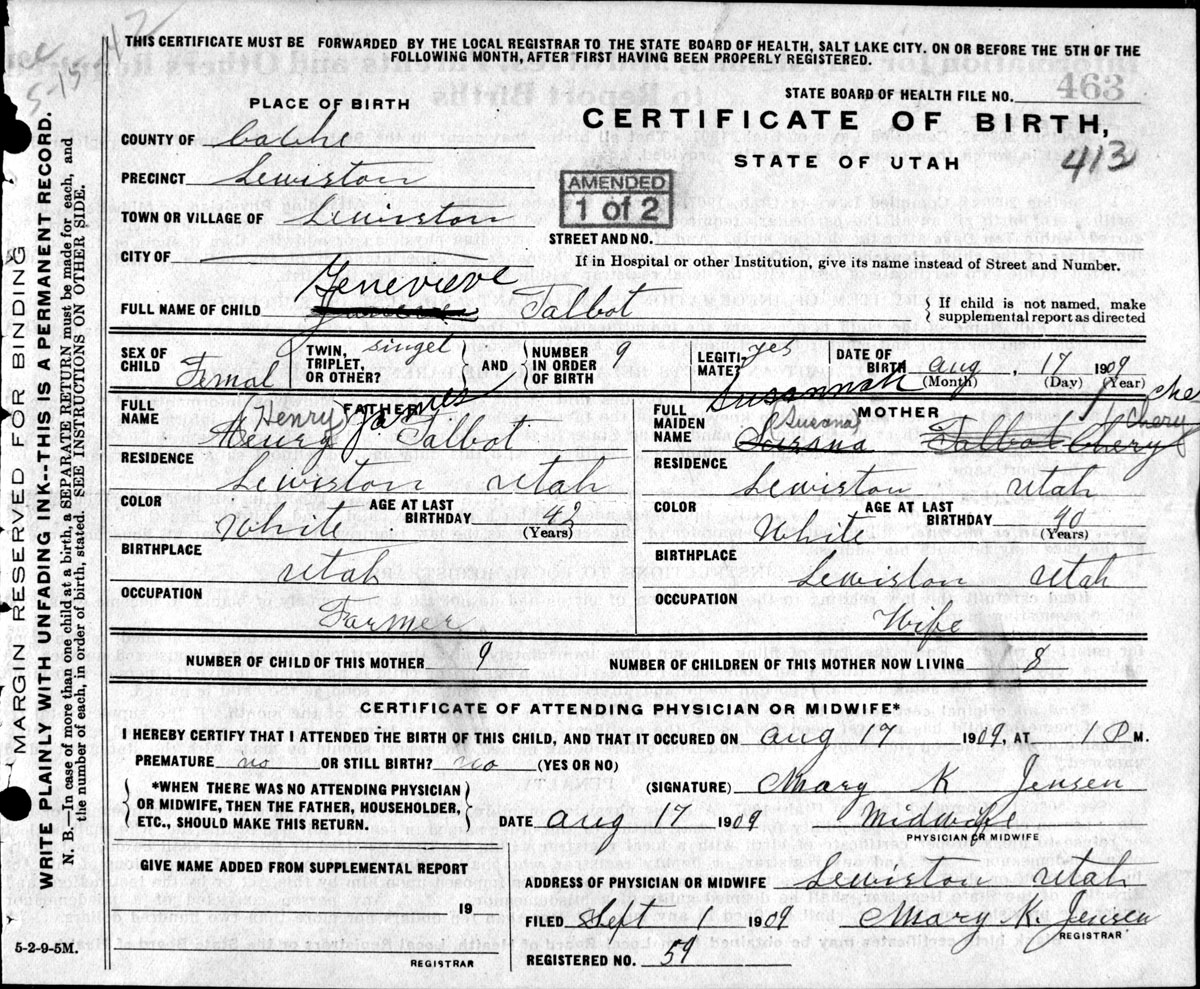 THIS CERTIFICATE MUST BE FORWARDED BY THE LOCAL REGISTRAR TO THE STATE BOARD OF HEALTH, SALT LAKE CITY. ON OR BEFORE THE 5TH OF THE
FOLLOWING MONTH, AFTER FIRST HAVING BEEN PROPERLY REGISTERED.
STATE BOARD OF HEALTH FILE NO. 463
PLACE OF BIRTH
CERTIFICATE OF BIRTH,
STATE OF UTAH
413
COUNTY OF Cache
PRECINCT Lewiston
AMENDED
1 of 2
TOWN OR VILLAGE OF Lewiston
STREET AND NO.
CITY OF
If in Hospital or other Institution, give its name instead of Street and Number.
Genevieve
FULL NAME OF CHILD Talbot
If child is not named, make
supplemental report as directed
SEX OF CHILD Femal
TWIN, TRIPLET, OR OTHER? singel
AND
NUMBER IN ORDER OF BIRTH 9
LEGITIMATE? yes
DATE OF BIRTH aug 17 1909
(Month) (Day) (Year)
FATHER
Henry James
FULL NAME Henry Ja Talbot
RESIDENCE
Lewiston Utah
COLOR
White
AGE AT LAST BIRTHDAY 42
(Years)
BIRTHPLACE
Utah
OCCUPATION
Farmer
Susannah
MOTHER
Susana
FULL MAIDEN NAME Talbot Chery
RESIDENCE
Lewiston Utah
COLOR
White
AGE AT LAST BIRTHDAY 40
(Years)
BIRTHPLACE
Lewiston Utah
OCCUPATION
Wife
NUMBER OF CHILD OF THIS MOTHER 9
NUMBER OF CHILDREN OF THIS MOTHER NOW LIVING 8
CERTIFICATE OF ATTENDING PHYSICIAN OR MIDWIFE*
I HEREBY CERTIFY THAT I ATTENDED THE BIRTH OF THIS CHILD, AND THAT IT OCCURED ON aug 17 1909, AT 1 P M.
PREMATURE no OR STILL BIRTH? no (YES OR NO)
*WHEN THERE WAS NO ATTENDING PHYSICIAN
OR MIDWIFE, THEN THE FATHER, HOUSEHOLDER,
ETC., SHOULD MAKE THIS RETURN.
(SIGNATURE) Mary K Jensen
DATE aug 17 1909 Midwife
PHYSICIAN OR MIDWIFE
GIVE NAME ADDED FROM SUPPLEMENTAL REPORT
19
REGISTRAR
ADDRESS OF PHYSICIAN OR MIDWIFE Lewiston Utah
FILED Sept 1 1909 Mary K Jensen
REGISTRAR
REGISTERED NO. 59
5-2-9-5M.
MARGIN RESERVED FOR BINDING
WRITE PLAINLY WITH UNFADING INK--THIS IS A PERMANENT RECORD.
N. B.—In case of more than one child at a birth, a SEPARATE RETURN must be made for each, and
the number of each, in order of birth, stated. SEE INSTRUCTIONS ON OTHER SIDE.